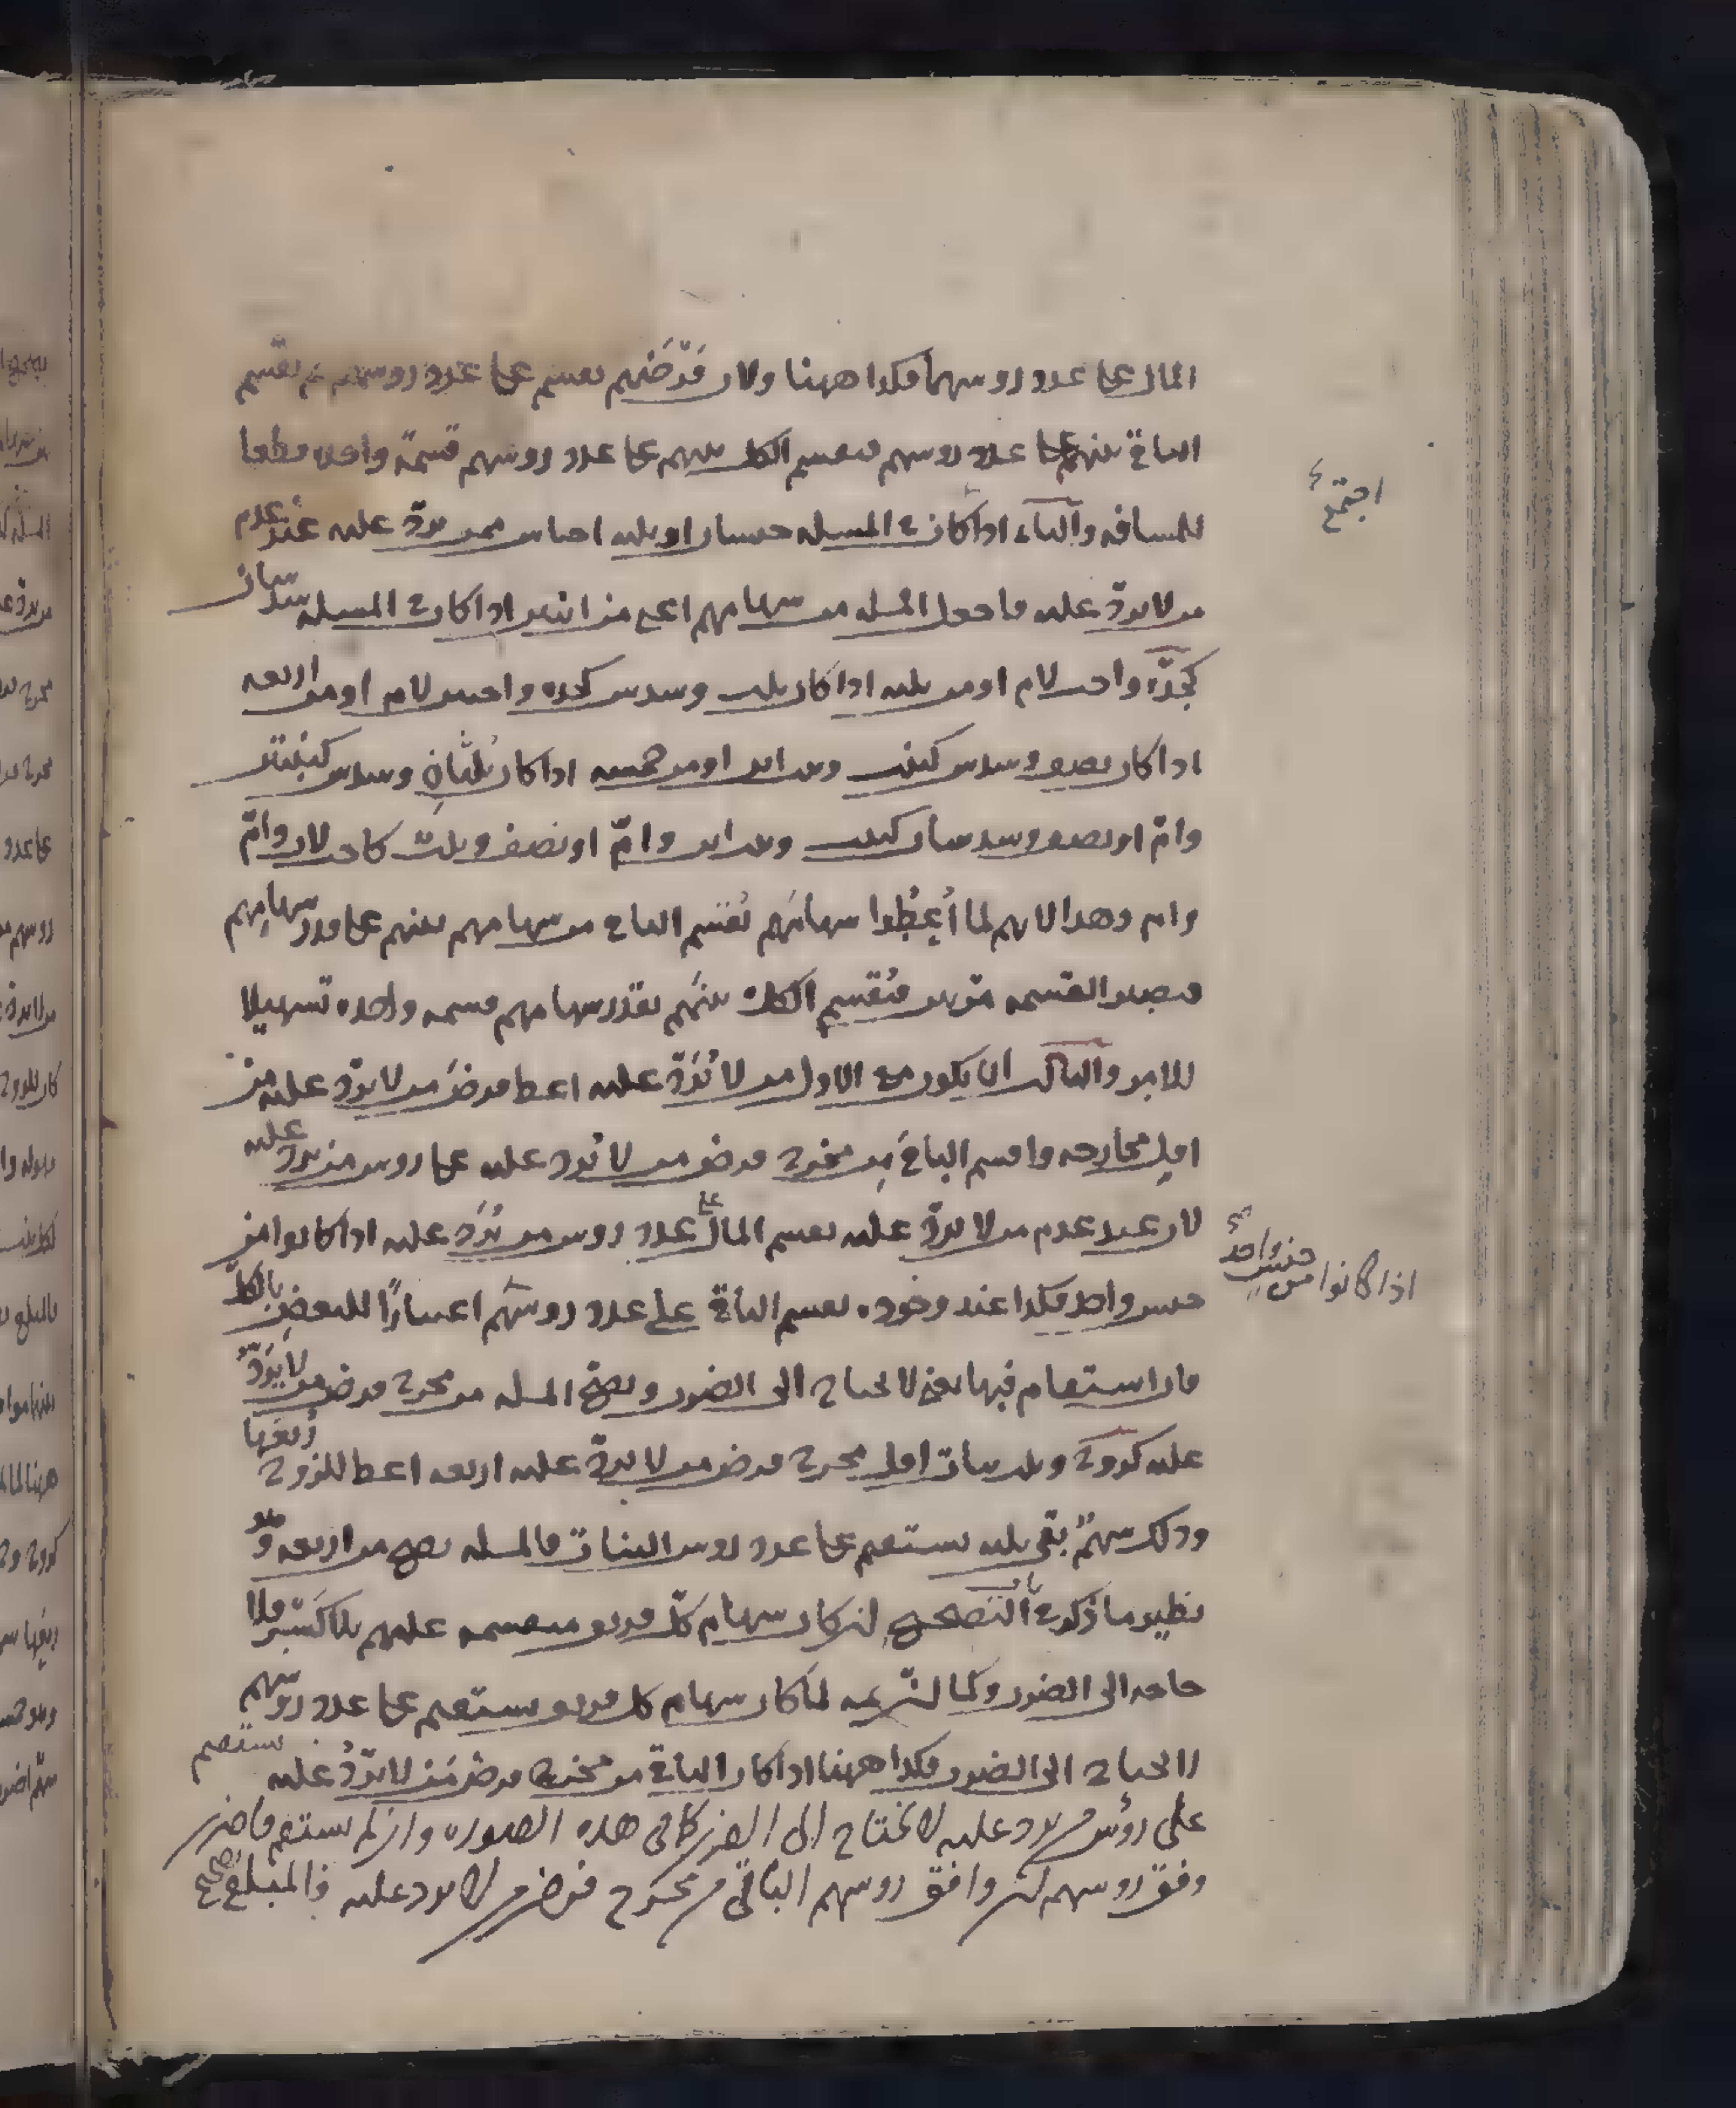 المال على عدد روسهما فكذا ههنا ولان فرضهم يقسم على عدد روسهم ثم يقسم
الباقي بينهم على عدد روسهم فيقسم الكل بينهم على عدد روسهم قسمة واحدة قطعا
للمسافه والثاني اذا كان في المسله جنسان او ثلثه اجناس ممن يرد عليه عند عدم
من لا يرد عليه فاجعل المسله من سهامهم اعني من اثنين اذا كان في المسله سدسان
كجدة واخت لام او من ثلثه اذا كان ثلث وسدس كجده واختين لام او من اربعه
اذا كان نصف وسدس كبنت وبنت ابن او من خمسه اذا كان ثلثان وسدس كبنتين
وام او نصف وسدسان كبنت وبنت ابن وام او نصف وثلث كاخت لاب وام
وام وهذا لانهم لما أعطوا سهامهم يقسم الباقي من سهامهم بينهم على قدر سهامهم
فيصير القسمه مرتين فيقسم الكل بينهم بقدر سهامهم قسمه واحده تسهيلا
للامر والثالث ان يكون مع الاول من لا يرد عليه اعط فرض من لا يرد عليه من
اقل مخارجه واقسم الباقي من مخرج فرض من لا يرد عليه على روس من يرد عليه
لان عند عدم من لا يرد عليه يقسم المال على عدد روس من يرد عليه اذا كانوا من
جنس واحد فكذا عند وجوده يقسم الباقي على عدد روسهم اعتبارا للبعض بالكل
فان استقام فبها يعني لا يحتاج الى الضرب ويصح المسله من مخرج فرض من لا يرد
عليه كزوج وثلث بنات اقل مخرج فرض من لا يرد عليه اربعه اعط للزوج ربعها
وذلك سهم بقي ثلثه يستقيم على عدد روس البنات فالمسله يصح من اربعه وهو
نظير ما ذكر في باب التصحيح ان كان سهام كل فريق منقسمه عليهم بلا كسر فلا
حاجه الى الضرب وكما لما كان سهام كل فريق يستقيم على عدد روسهم
لا يحتاج الى الضرب فكذا ههنا اذا كان الباقي من مخرج فرض من لا يرد عليه يستقيم
على رؤس من يرد عليه لا يحتاج الى الضرب كما في هذه الصوره وان لم يستقم فاضرب
وفق روسهم ان وافق روسهم الباقي من مخرج فرض من لا يرد عليه فالمبلغ
اجتمع
اذا كانوا من جنس واحد